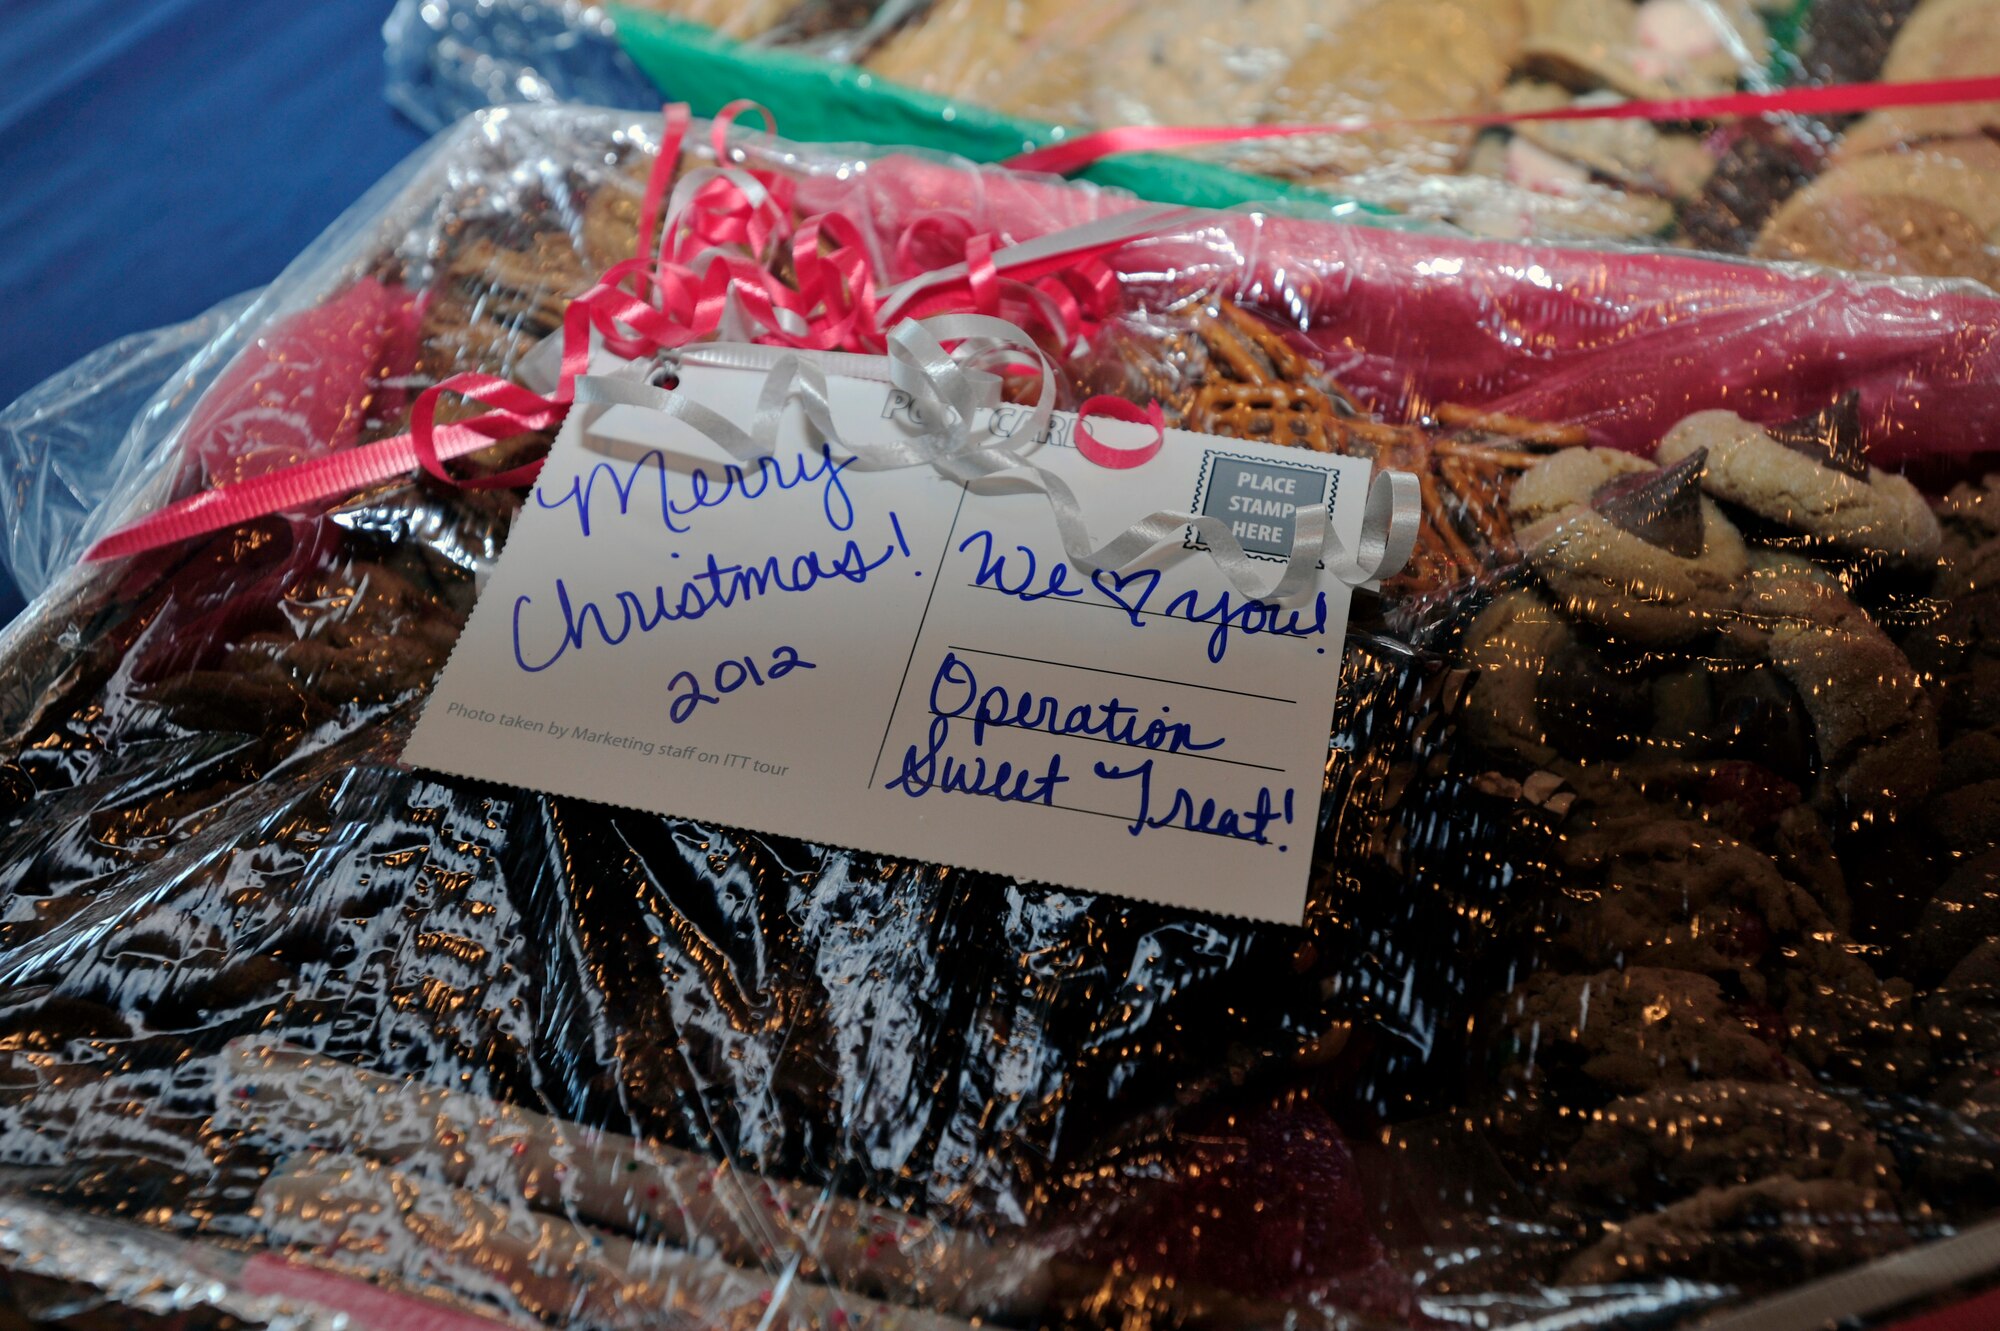 POST CARD
Merry
Christmas!
2012
Photo taken by Marketing staff on ITT tour
PLACE
STAMP
HERE
We ♡ you!
Operation
Sweet Treat!